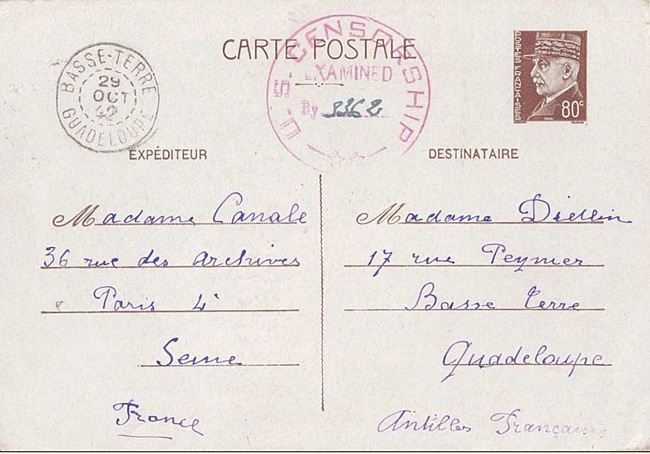 CARTE POSTALE
BASSE-TERRE
29
OCT
42
GUADELOUPE
U.S. CENSORSHIP
EXAMINED
By 3362
POSTES FRANÇAISES
80c
EXPÉDITEUR
Madame Canale
36 rue des Archives
Paris 4e
Seine
France
DESTINATAIRE
Madame
17 rue Peynier
Basse Terre
Guadeloupe
Antilles Françaises